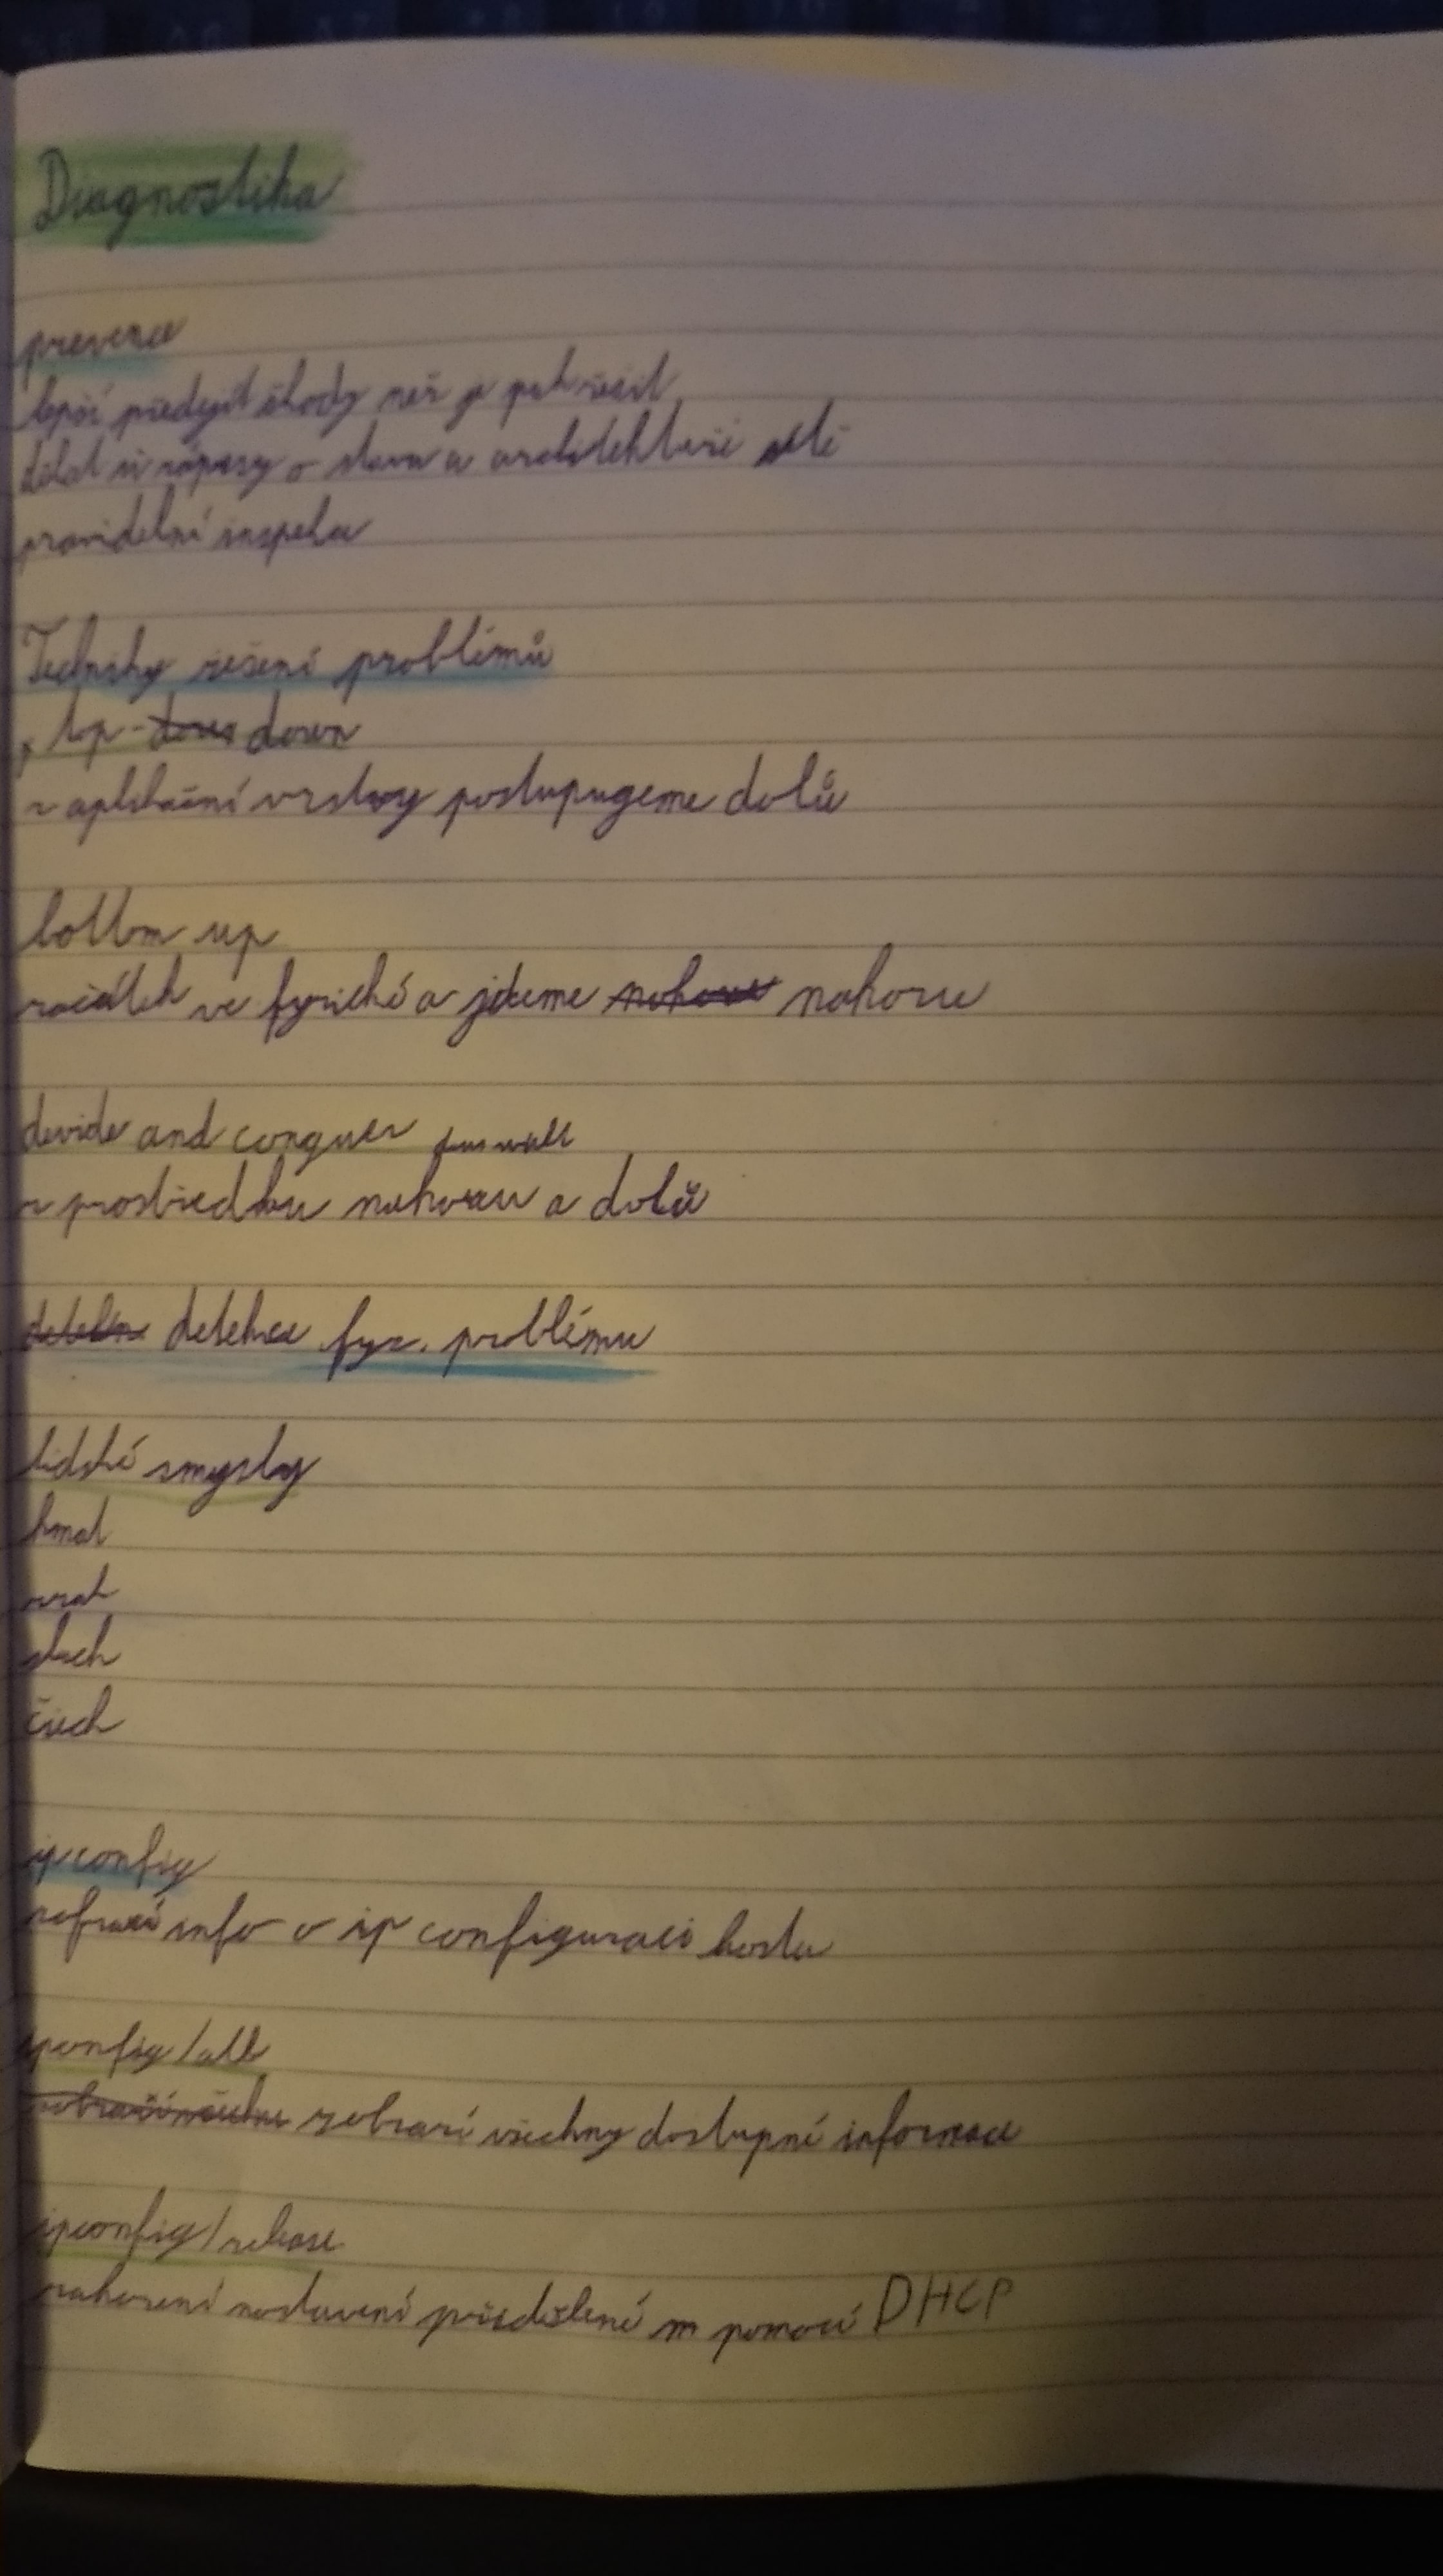 Diagnostika
prevence
lepší předejít škody než je pak řešit
dělat si zápisy o stavu a architektuře sítě
pravidelní inspekce
Techniky řešení problémů
top - down
z aplikační vrstvy postupujeme dolů
bottom up
začátek ve fyzické a jdeme nahoru
devide and conquer
z prostředku nahoru a dolů
detekce fyz. problému
lidské smysly
hmat
zrak
sluch
čich
ipconfig
info o ip configuraci hostu
ipconfig /all
zobrazí všechny dostupné informace
ipconfig /release
zahození nastavení přidělené m pomocí DHCP